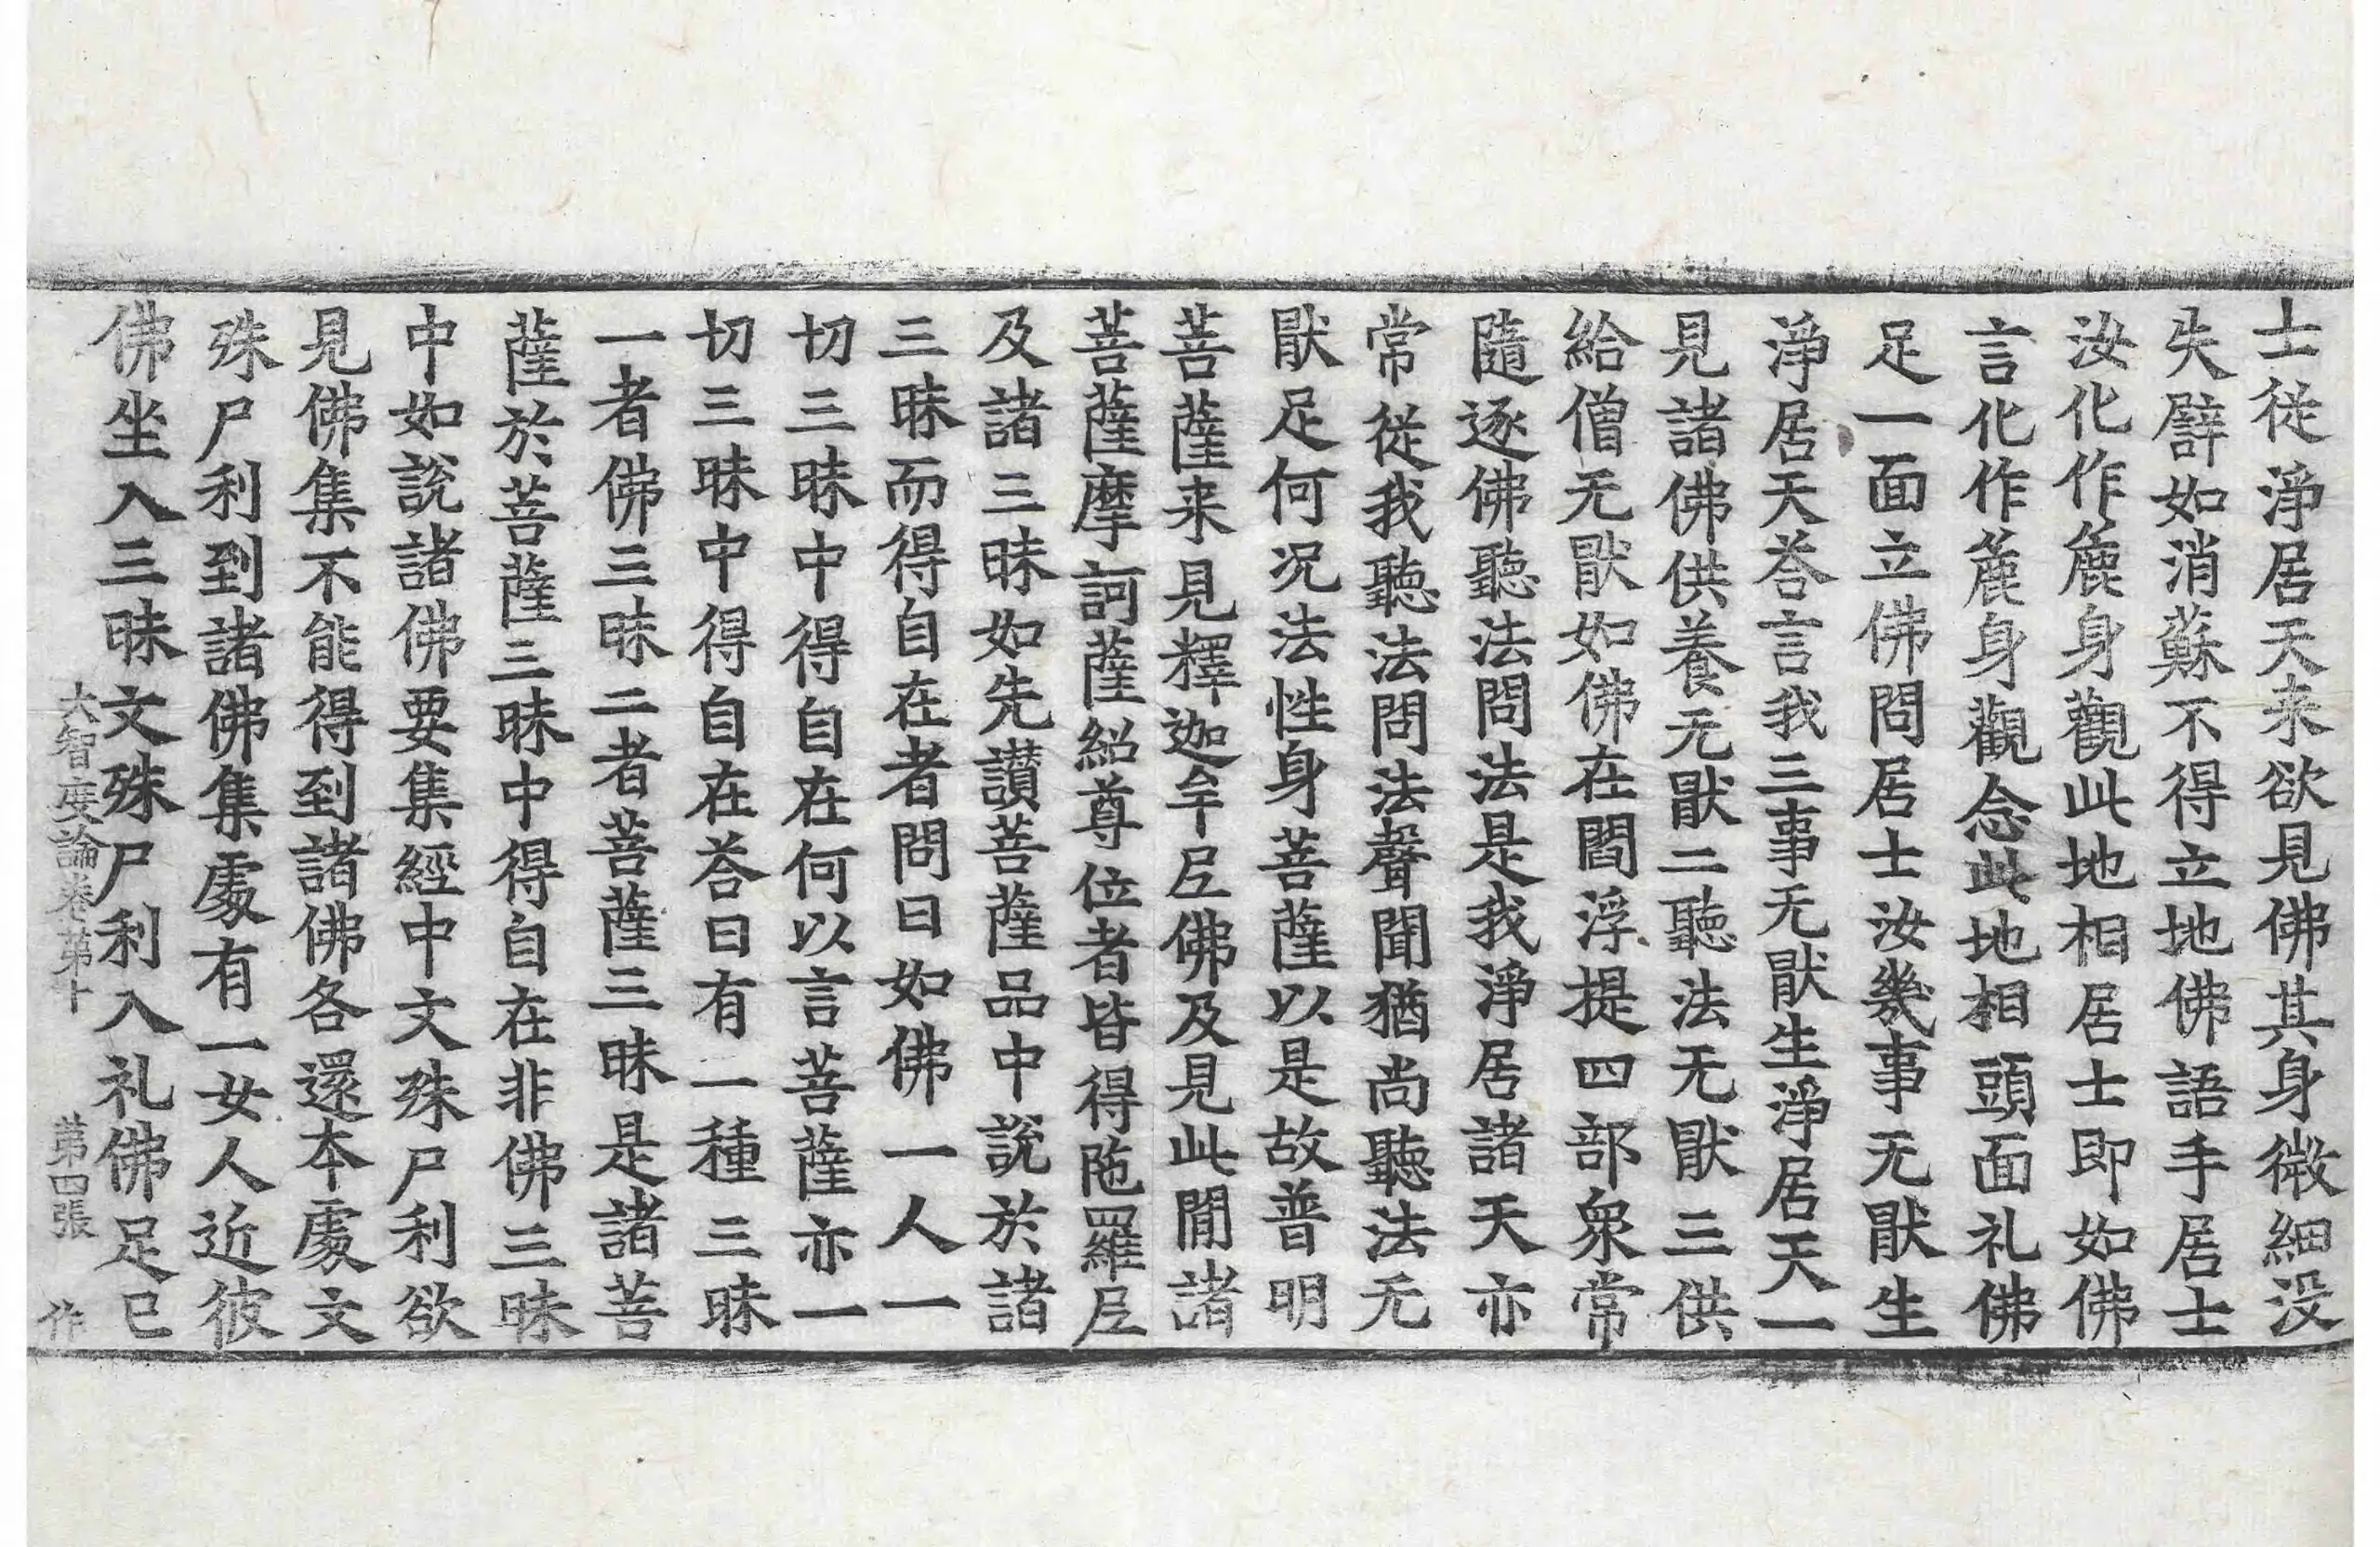 士從淨居天来欲見佛其身微細没
失譬如消蘇不得立地佛語手居士
汝化作麁身觀此地相居士即如佛
言化作麁身觀念此地相頭面礼佛
足一面立佛問居士汝幾事无猒生
淨居天荅言我三事无猒生淨居天一
見諸佛供養无猒二聽法无猒三供
給僧无猒如佛在閻浮提四部衆常
隨逐佛聽法問法是我淨居諸天亦
常從我聽法問法聲聞猶尚聽法无
猒足何况法性身菩薩以是故普明
菩薩来見釋迦牟𡰱佛及見此閒諸
菩薩摩訶薩紹尊位者皆得陁羅𡰱
及諸三昧如先讃菩薩品中說於諸
三昧而得自在者問曰如佛一人一
切三昧中得自在何以言菩薩亦一
切三昧中得自在荅曰有二種三昧
一者佛三昧二者菩薩三昧是諸菩
薩於菩薩三昧中得自在非佛三昧
中如說諸佛要集經中文殊尸利欲
見佛集不能得到諸佛各還本處文
殊尸利到諸佛集處有一女人近彼
佛坐入三昧文殊尸利入礼佛足已
大智度論卷第十　第四張　作